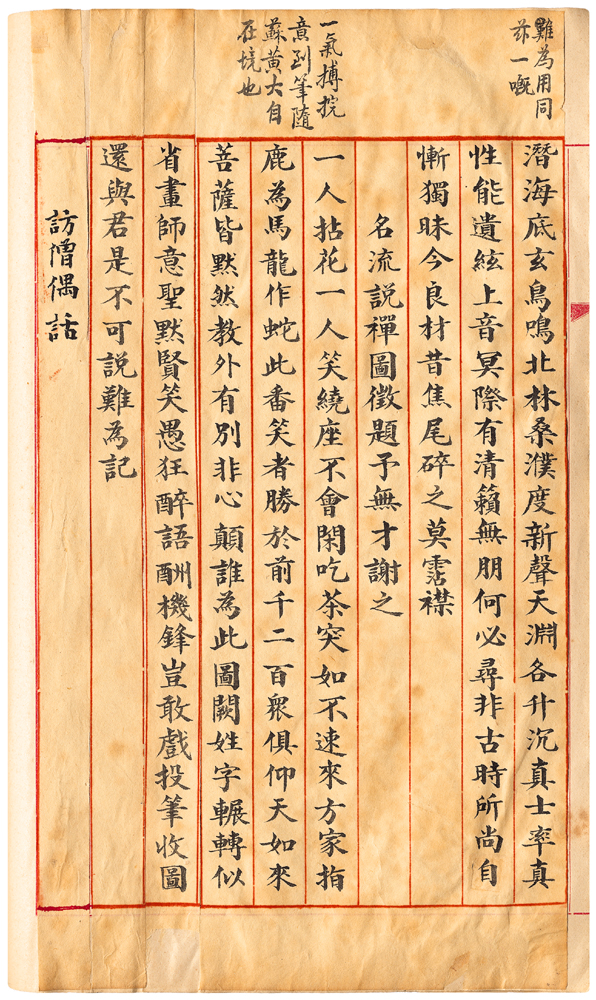 難為用同
茲一嘅
潛海底玄鳥鳴北林桑濮度新聲天淵各升沉真士率真
性能遺絃上音冥際有清籟無朋何必尋非古時所尚自
慚獨昧今良材昔焦尾碎之莫霑襟
名流說禪圖徵題予無才謝之
一氣摶捖
意到筆隨
蘇黃大自
在境也
一人拈花一人笑繞座不會閑吃茶突如不速來方家指
鹿為馬龍作蛇此番笑者勝於前千二百眾俱仰天如來
菩薩皆默然教外有別非心顛誰為此圖闕姓字輾轉似
省畫師意聖默賢笑愚狂醉語酬機鋒豈敢戲投筆收圖
還與君是不可說難為記
訪僧偶話